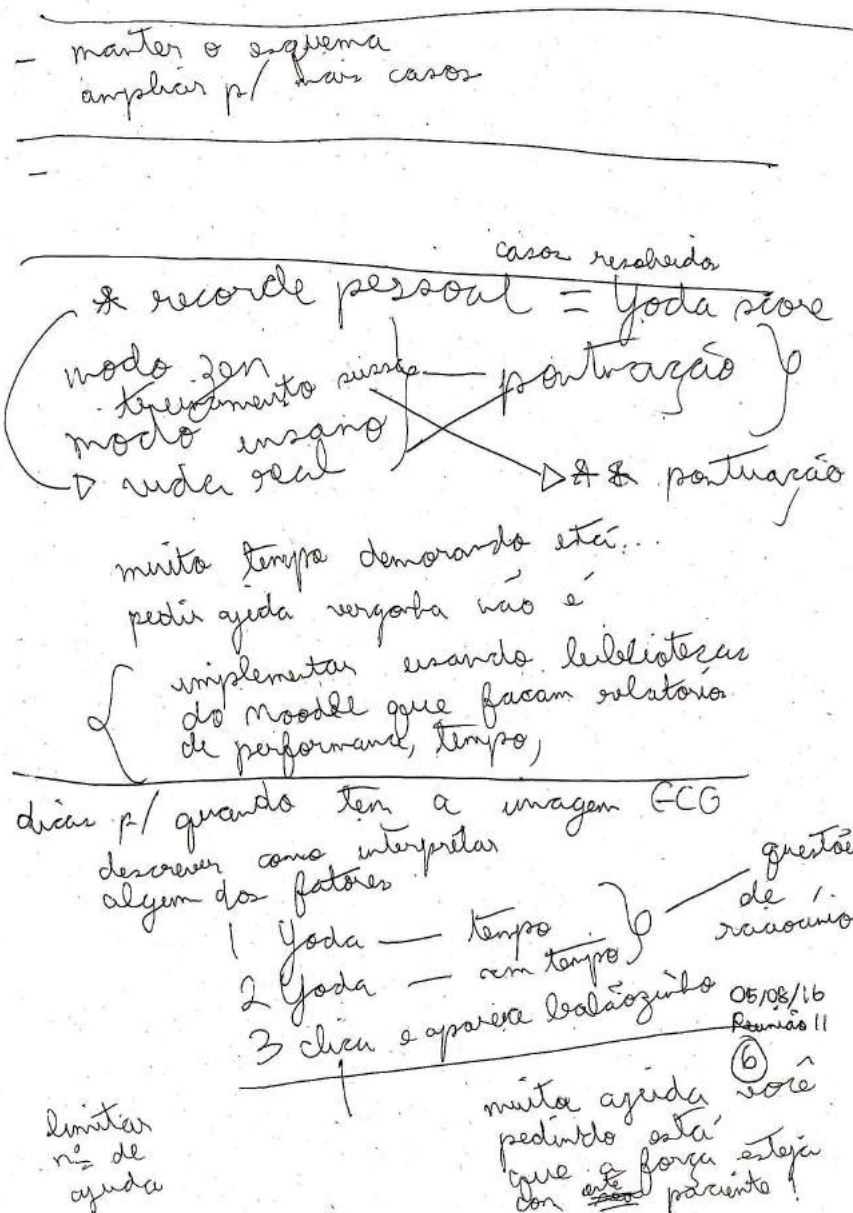 - manter o esquema
ampliar p/ mais casos
-
casos resolvidos
* recorde pessoal = Yoda score
modo zen
treinamento
— pontuação
modo insano
vida real
** pontuação
muito tempo demorando está...
pedir ajuda vergonha não é
implementar usando bibliotecas
do Moodle que facam relatório
de performance, tempo,
dicas p/ quando tem a imagem ECG
descrever como interpretar
algum dos fatores
1 Yoda — tempo
2 Yoda — sem tempo
questões
de
raciocínio
3 clica e aparece balãozinho
05/08/16
Reunião 11
6
limitar
nº de
ajuda
muita ajuda você
pedindo está
que a força esteja
com este paciente!